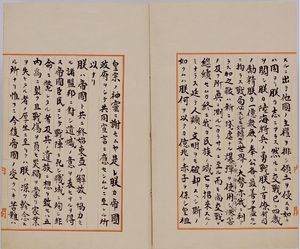 スルニ出テ他國ノ主權ヲ排シ領土ヲ侵スカ如
キハ固ヨリ朕カ志ニアラス然ルニ交戰已ニ四歳
ヲ閲シ朕カ陸海將兵ノ勇戰朕カ百僚有司
ノ勵精朕カ一億衆庶ノ奉公各々最善ヲ盡セル
ニ拘ラス戰局必スシモ好轉セス世界ノ大勢亦我ニ利
アラス加之敵ハ新ニ殘虐ナル爆彈ヲ使用シテ頻ニ無辜ヲ殺傷シ慘害
ノ及フ所眞ニ測ルヘカラサルニ至ル而モ尚交戰ヲ
繼續セムカ終ニ我カ民族ノ滅亡ヲ招來スルノ
ミナラス延テ人類ノ文明ヲモ破却スヘシ斯ノ
如クムハ朕何ヲ以テカ億兆ノ赤子ヲ保シ皇祖
皇宗ノ神靈ニ謝セムヤ是レ朕カ帝國
政府ヲシテ共同宣言ニ應セシムルニ至レル所
以ナリ
朕ハ帝國ト共ニ終始東亞ノ解放ニ協力セ
ル諸盟邦ニ對シ遺憾ノ意ヲ表セサルヲ得
ス帝國臣民ニシテ戰陣ニ死シ職域ニ殉シ非
命ニ斃レタル者及其ノ遺族ニ想ヲ致セハ五
内爲ニ裂ク且戰傷ヲ負ヒ災禍ヲ蒙リ家業
ヲ失ヒタル者ノ厚生ニ至リテハ朕ノ深ク軫念ス
ル所ナリ惟フニ今後帝國ノ受クヘキ苦難ハ